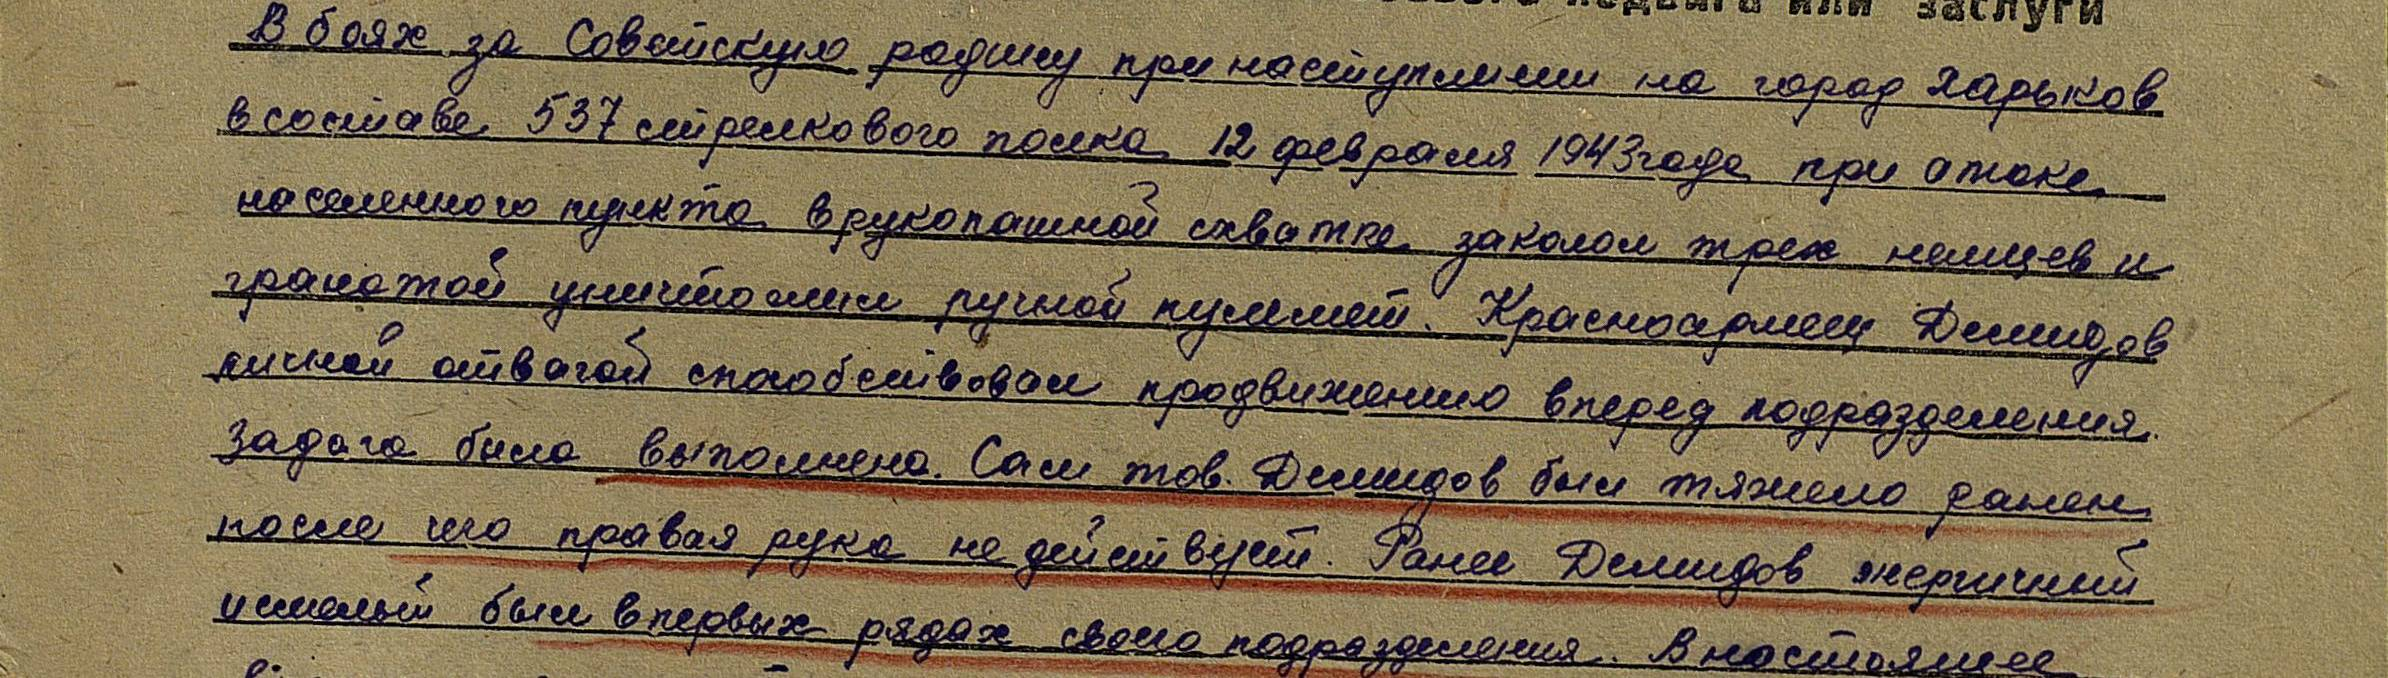 подвига или заслуги
В боях за Советскую родину при наступлении на город Харьков
в составе 537 стрелкового полка 12 февраля 1943 года при атаке
населенного пункта в рукопашной схватке заколол трех немцев и
гранатой уничтожил ручной пулемет. Красноармеец Демидов
личной отвагой способствовал продвижению вперед подразделения.
Задача была выполнена. Сам тов. Демидов был тяжело ранен
после чего правая рука не действует. Ранее Демидов энергичный
и смелый был в первых рядах своего подразделения. В настоящее